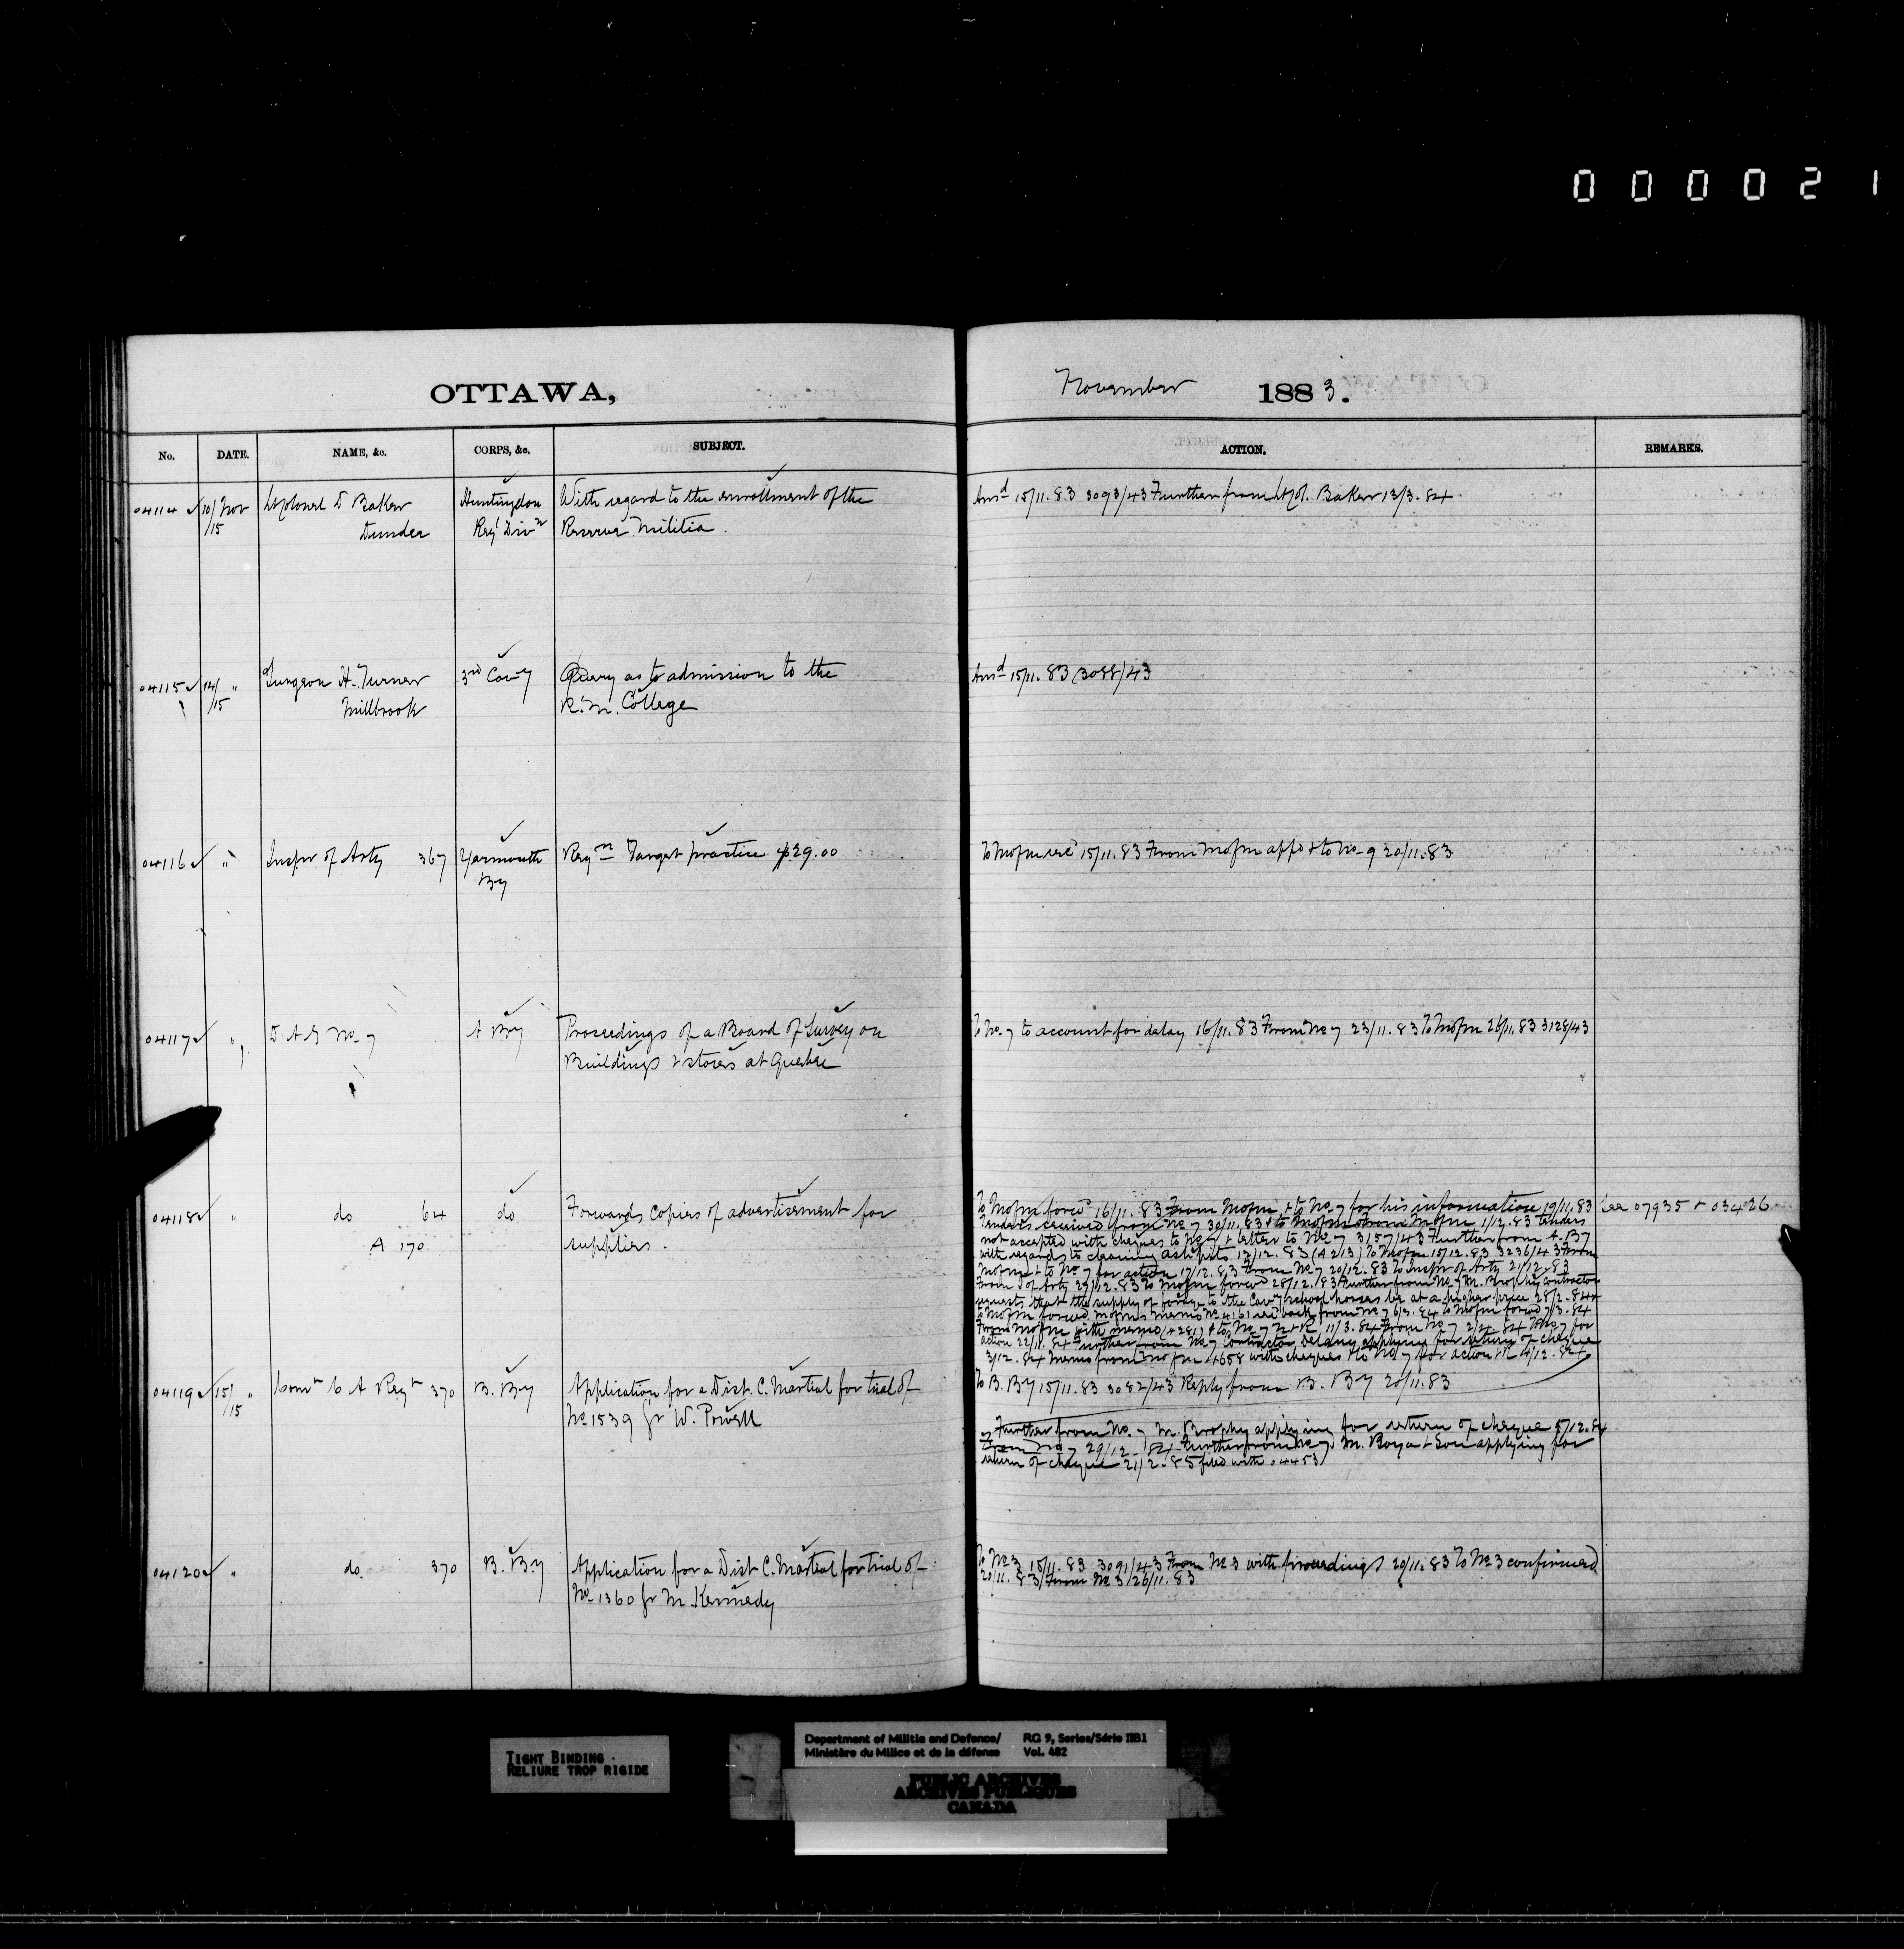 000021
OTTAWA,
November 1883.
No. DATE. NAME, &c. CORPS, &c. SUBJECT. ACTION. REMARKS.
04114 10/Nov Lt Colonel D Baker Huntingdon With regard to the enrollment of the Ansd 15/11.83 3093/43 Further from Lt Col. Baker 13/3.84
/15 Dundee Regl Divn Reserve Militia.
04115 14/ " Surgeon H. Turner 3rd Cavy Query as to admission to the Ansd 15/11.83 (3088/43
/15 Millbrook R.M. College
04116 " Inspr of Arty 367 Yarmouth Reqn Target practice $29.00 To Mofm 15/11.83 From Mofm appd & to No 9 20/11.83
By
04117 " D.A.G No 7 A By Proceedings of a Board of Survey on To No 7 to account for delay 16/11.83 From No 7 23/11.83 To Mofm 26/11.83 3128/43
Buildings & stores at Quebec
04118 " do 64 do Forwards Copies of advertisement for To Mofm forwd 16/11.83 From Mofm & to No 7 for his information 19/11.83 See 07935 & 03426
A 170 suppliers.
Tenders received from No 7 30/11.83 & to Mofm From Mofm 1/12.83 tenders
not accepted with cheques to No 7 & letter to No 7 3157/43 Further from A. By
with regards to cleaning ashpits 12/12.83 (4213) To Mofm 15/12.83 3236/43 From
Mofm & to No 7 for action 17/12.83 From No 7 20/12.83 To Inspr of Arty 21/12.83
From I of Arty 27/12.83 To Mofm forwd 28/12.83 Further from No 7 M. Brophy Contractor
requests that the supply of forage to the Cavy School horses be at a higher price 28/2.84
to Mofm forwd Mofm's memo No 4161 back from No 7 6/3.84 to Mofm forwd 7/3.84
From Mofm with memo (4281) & to No 7 11/3.84 From No 7 2/4.84 No 7 for
action 22/11.84 Further from No 7 Contractor applying for return of cheque
3/12.84 Memo from Mofm 4658 with cheques & to No 7 for action & R 4/12.84
04119 15/ " Comt C A Regt 370 B. By Application for a Dist. C. Martial for trial of To B. By 15/11.83 3082/43 Reply from B. By 20/11.83
/15 No 1539 Gr W. Powell
Further from No. 7 M. Brophy applying for return of cheque 5/12.84
From No 7 29/12.84 Further from No 7 M. Boya & Son applying for
return of cheque 21/2.85 filed with 04453
04120 " do 370 B. By Application for a Dist C. Martial for trial of To No 3 15/11.83 3091/43 From No 3 with proceedings 20/11.83 To No 3 confirmed
No 1360 Gr M. Kennedy 20/11.83 From No 3 26/11.83
TIGHT BINDING
RELIURE TROP RIGIDE
Department of Militia and Defence/ RG 9, Series/Série IIB1
Ministère du Milice et de la défense Vol. 482
PUBLIC ARCHIVES
ARCHIVES PUBLIQUES
CANADA